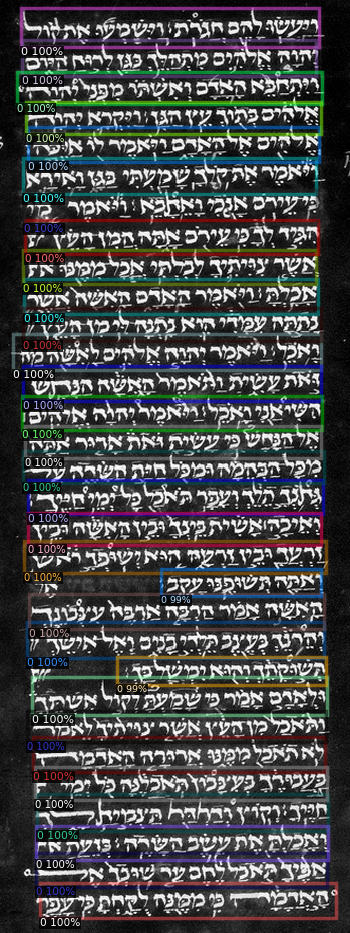 ויעשו להם חגרת וישמעו את קול
יהוה אלהים מתהלך בגן לרוח היום
ויתחבא האדם ואשתו מפני יהוה
אלהים בתוך עץ הגן ויקרא יהוה
אלהים אל האדם ויאמר לו איכה
ויאמר את קלך שמעתי בגן ואירא
כי עירם אנכי ואחבא ויאמר מי
הגיד לך כי עירם אתה המן העץ
אשר צויתיך לבלתי אכל ממנו
אכלת ויאמר האדם האשה אשר
נתתה עמדי הוא נתנה לי מן העץ
ואכל ויאמר יהוה אלהים לאשה מה
זאת עשית ותאמר האשה הנחש
השיאני ואכל ויאמר יהוה אלהים
אל הנחש כי עשית זאת ארור אתה
מכל הבהמה ומכל חית השדה על
גחנך תלך ועפר תאכל כל ימי חייך
ואיבה אשית בינך ובין האשה ובין
זרעך ובין זרעה הוא ישופך ראש
ואתה תשופנו עקב
האשה אמר הרבה ארבה עצבונך
והרנך בעצב תלדי בנים ואל אישך
תשוקתך והוא ימשל בך
ולאדם אמר כי שמעת לקול אשתך
ותאכל מן העץ אשר צויתיך לאמר
לא תאכל ממנו ארורה האדמה
בעבורך בעצבון תאכלנה כל ימי
חייך וקוץ ודרדר תצמיח לך
ואכלת את עשב השדה בזעת
אפיך תאכל לחם עד שובך אל
האדמה כי ממנה לקחת כי עפר